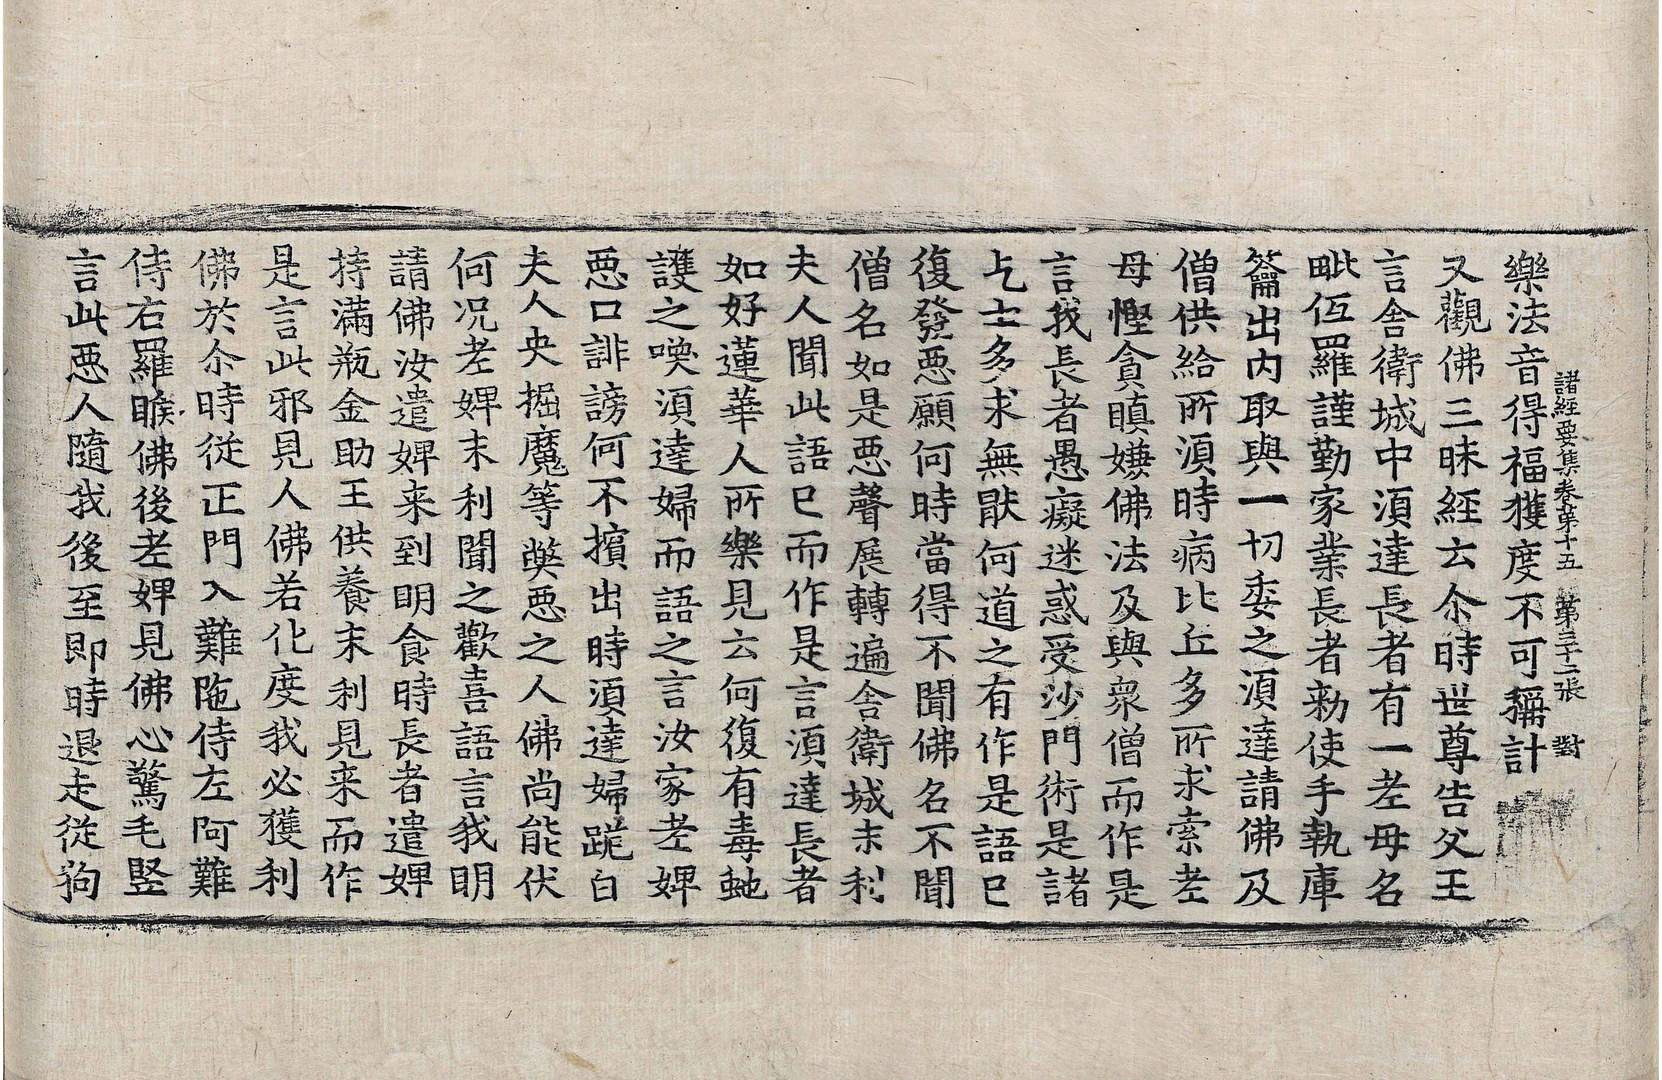 諸經要集卷第十五 第三十二張 對
樂法音得福獲度不可稱計
又觀佛三昧經云尒時世尊告父王
言舍衛城中湏達長者有一老母名
毗伍羅謹勤家業長者勑使手執庫
籥出內取與一切委之湏達請佛及
僧供給所湏時病比丘多所求索老
母慳貪瞋嫌佛法及與衆僧而作是
言我長者愚癡迷惑受沙門術是諸
乞士多求無猒何道之有作是語已
復發惡願何時當得不聞佛名不聞
僧名如是惡聲展轉遍舍衛城末利
夫人聞此語已而作是言湏達長者
如好蓮華人所樂見云何復有毒虵
護之喚湏達婦而語之言汝家老婢
惡口誹謗何不擯出時湏達婦跪白
夫人央掘魔等獘惡之人佛尚能伏
何況老婢末利聞之歡喜語言我明
請佛汝遣婢来到明食時長者遣婢
持滿瓶金助王供養末利見来而作
是言此邪見人佛若化度我必獲利
佛於尒時從正門入難陁侍左阿難
侍右羅睺佛後老婢見佛心驚毛竪
言此惡人隨我後至即時退走從狗